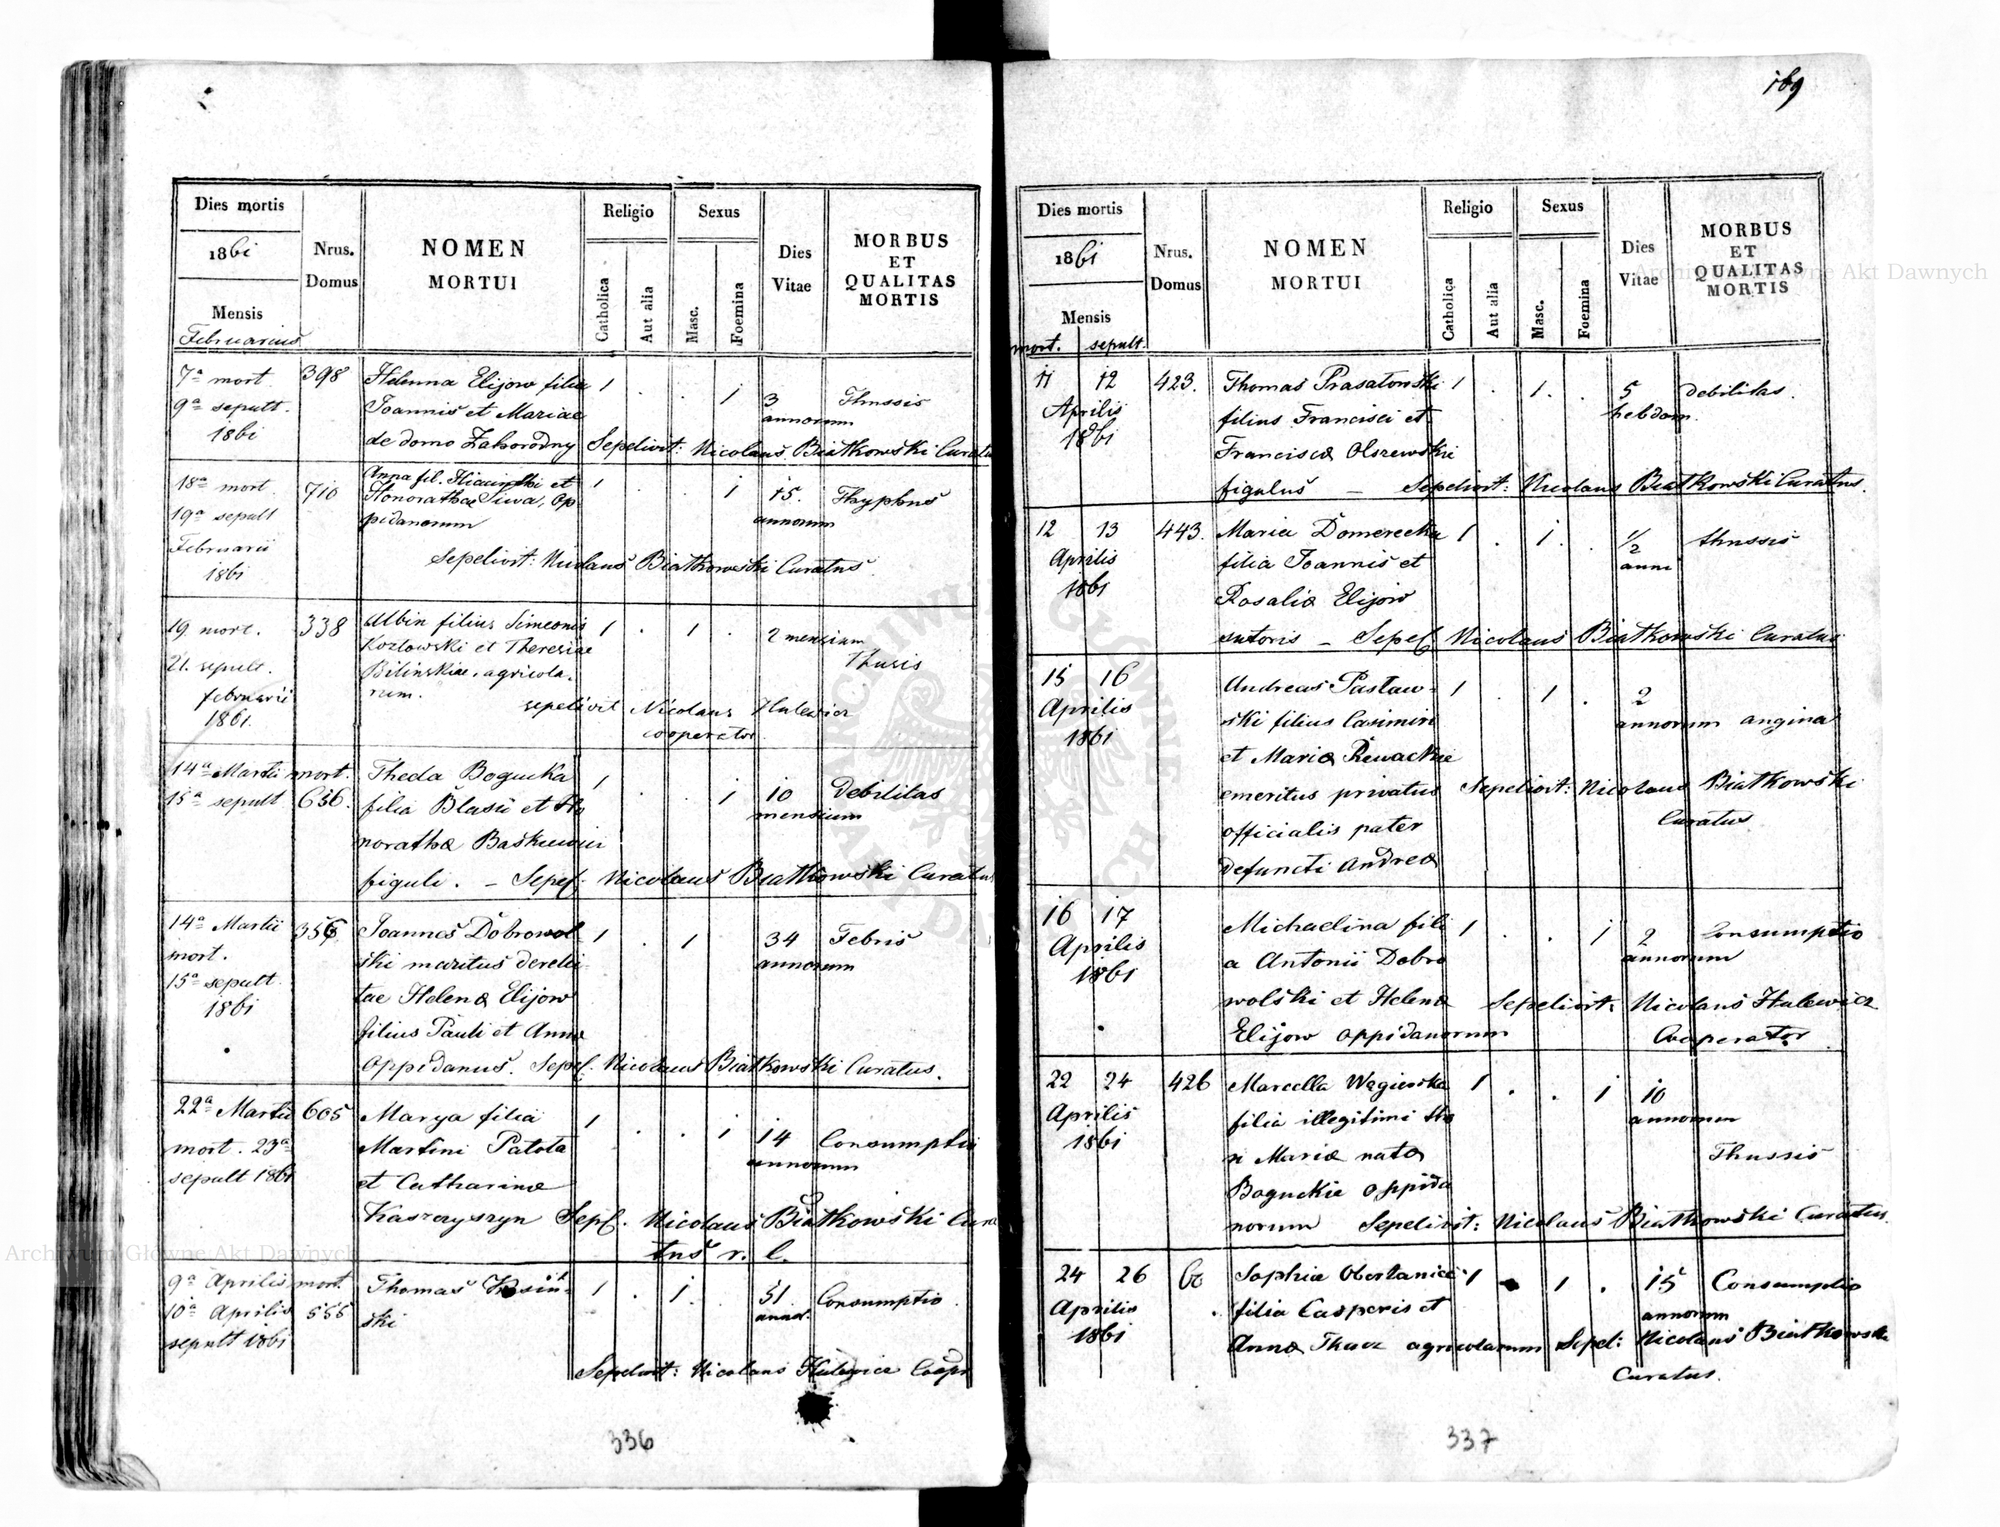 169
Dies mortis
1861
Mensis
Februarius
Nrus. Domus
NOMEN
MORTUI
Religio
Catholica
Aut alia
Sexus
Masc.
Foemina
Dies Vitae
MORBUS
ET
QUALITAS
MORTIS
7a mort. 398 Helenna Elijow filia 1 . . 1 3 Thussis
9a sepult. Joannis et Mariae annorum
1861 de domo Zahorodny Sepelivit: Nicolaus Białkowski Curatus
18a mort. 710 Anna fil. Hiacinthi et 1 . . 1 15. Thyphus
19a sepult Honorathæ Siwa, Op- annorum
Februarii pidanorum
1861 Sepelivit: Nicolaus Białkowski Curatus
19. mort. 338 Albin filius Simeonis 1 . 1 . 2 mensium
21. sepult. Kozłowski et Theresiae Thusis
februarii Bilinskiae, agricola-
1861. rum. sepelivit Nicolaus Hulewicz
cooperator.
14a Martii mort. Theda Bogucka 1 . . 1 10 Debilitas
15a sepult 656. filia Blasii et Ho mensium
norathæ Baśkiewicz
figuli. – Sepel. Nicolaus Białkowski Curatus
14a Martii 356 Joannes Dobrowol 1 . 1 34 Febris
mort. ski maritus derelic annorum
15a sepult. tae Helenæ Elijow
1861 filius Pauli et Annæ
Oppidanus. Sepel. Nicolaus Białkowski Curatus.
22a Martii 605 Marya filia 1 . . 1 14 Consumptio
mort. 23a Martini Patota annorum
sepult 1861 et Catharinæ
Kaszczyszyn Sepel. Nicolaus Białkowski Cura
tus r. l.
9a Aprilis mort. Thomas 1 . 1. 51 Consumptio
10a Aprilis 555 ski annor.
sepult 1861
Sepelivit: Nicolaus Hulewicz Coopr
336
Dies mortis
1861
Mensis
mort. sepult.
Nrus. Domus
NOMEN
MORTUI
Religio
Catholica
Aut alia
Sexus
Masc.
Foemina
Dies Vitae
MORBUS
ET
QUALITAS
MORTIS
11 12 423. Thomas Prasatowski 1 . 1. . 5 debilitas.
Aprilis filius Francisci et hebdom.
1861 Franciscæ Olszewski
figulus – Sepelivit: Nicolaus Białkowski Curatus.
12 13 443. Maria Domerecka 1 . 1. . 1/2 thussis
Aprilis filia Joannis et anni
1861 Rosaliæ Elijow
sutoris – Sepel Nicolaus Białkowski Curatus
15 16 Andreas Pastaw- 1 . 1 . 2
Aprilis ski filius Casimiri annorum angina
1861 et Mariæ
emeritus privatus Sepelivit: Nicolaus Białkowski
officialis pater Curatus
defuncti Andreæ
16 17 Michaelina fili 1 . . 1 2 Consumptio
Aprilis a Antonii Dobro annorum
1861 wolski et Helenæ Sepelivit: Nicolaus Hulewicz
Elijow oppidanorum Cooperator
22 24 426 Marcella Węgierska 1 . . 1 10
Aprilis filia illegitimi tho annorum
1861 ri Mariæ natæ Thussis
Boguckie oppida
norum Sepelivit: Nicolaus Białkowski Curatus
24 26 60 Sophia 1 1 . 15 Consumptio
Aprilis filia Casperis et annorum
1861 Annæ Tkacz agricolarum Sepel: Nicolaus Białkowski
Curatus.
337
Archiwum Główne Akt Dawnych
Archiwum Główne Akt Dawnych